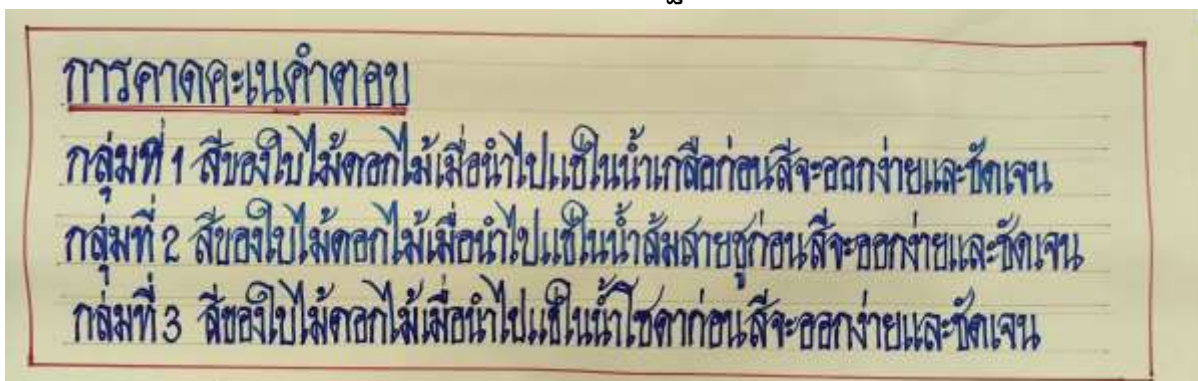 การคาดคะเนคำตอบ
กลุ่มที่ 1 สีของใบไม้ดอกไม้เมื่อนำไปแช่ในน้ำเกลือก่อนสีจะออกง่ายและชัดเจน
กลุ่มที่ 2 สีของใบไม้ดอกไม้เมื่อนำไปแช่ในน้ำส้มสายชูก่อนสีจะออกง่ายและชัดเจน
กลุ่มที่ 3 สีของใบไม้ดอกไม้เมื่อนำไปแช่ในน้ำโซดาก่อนสีจะออกง่ายและชัดเจน